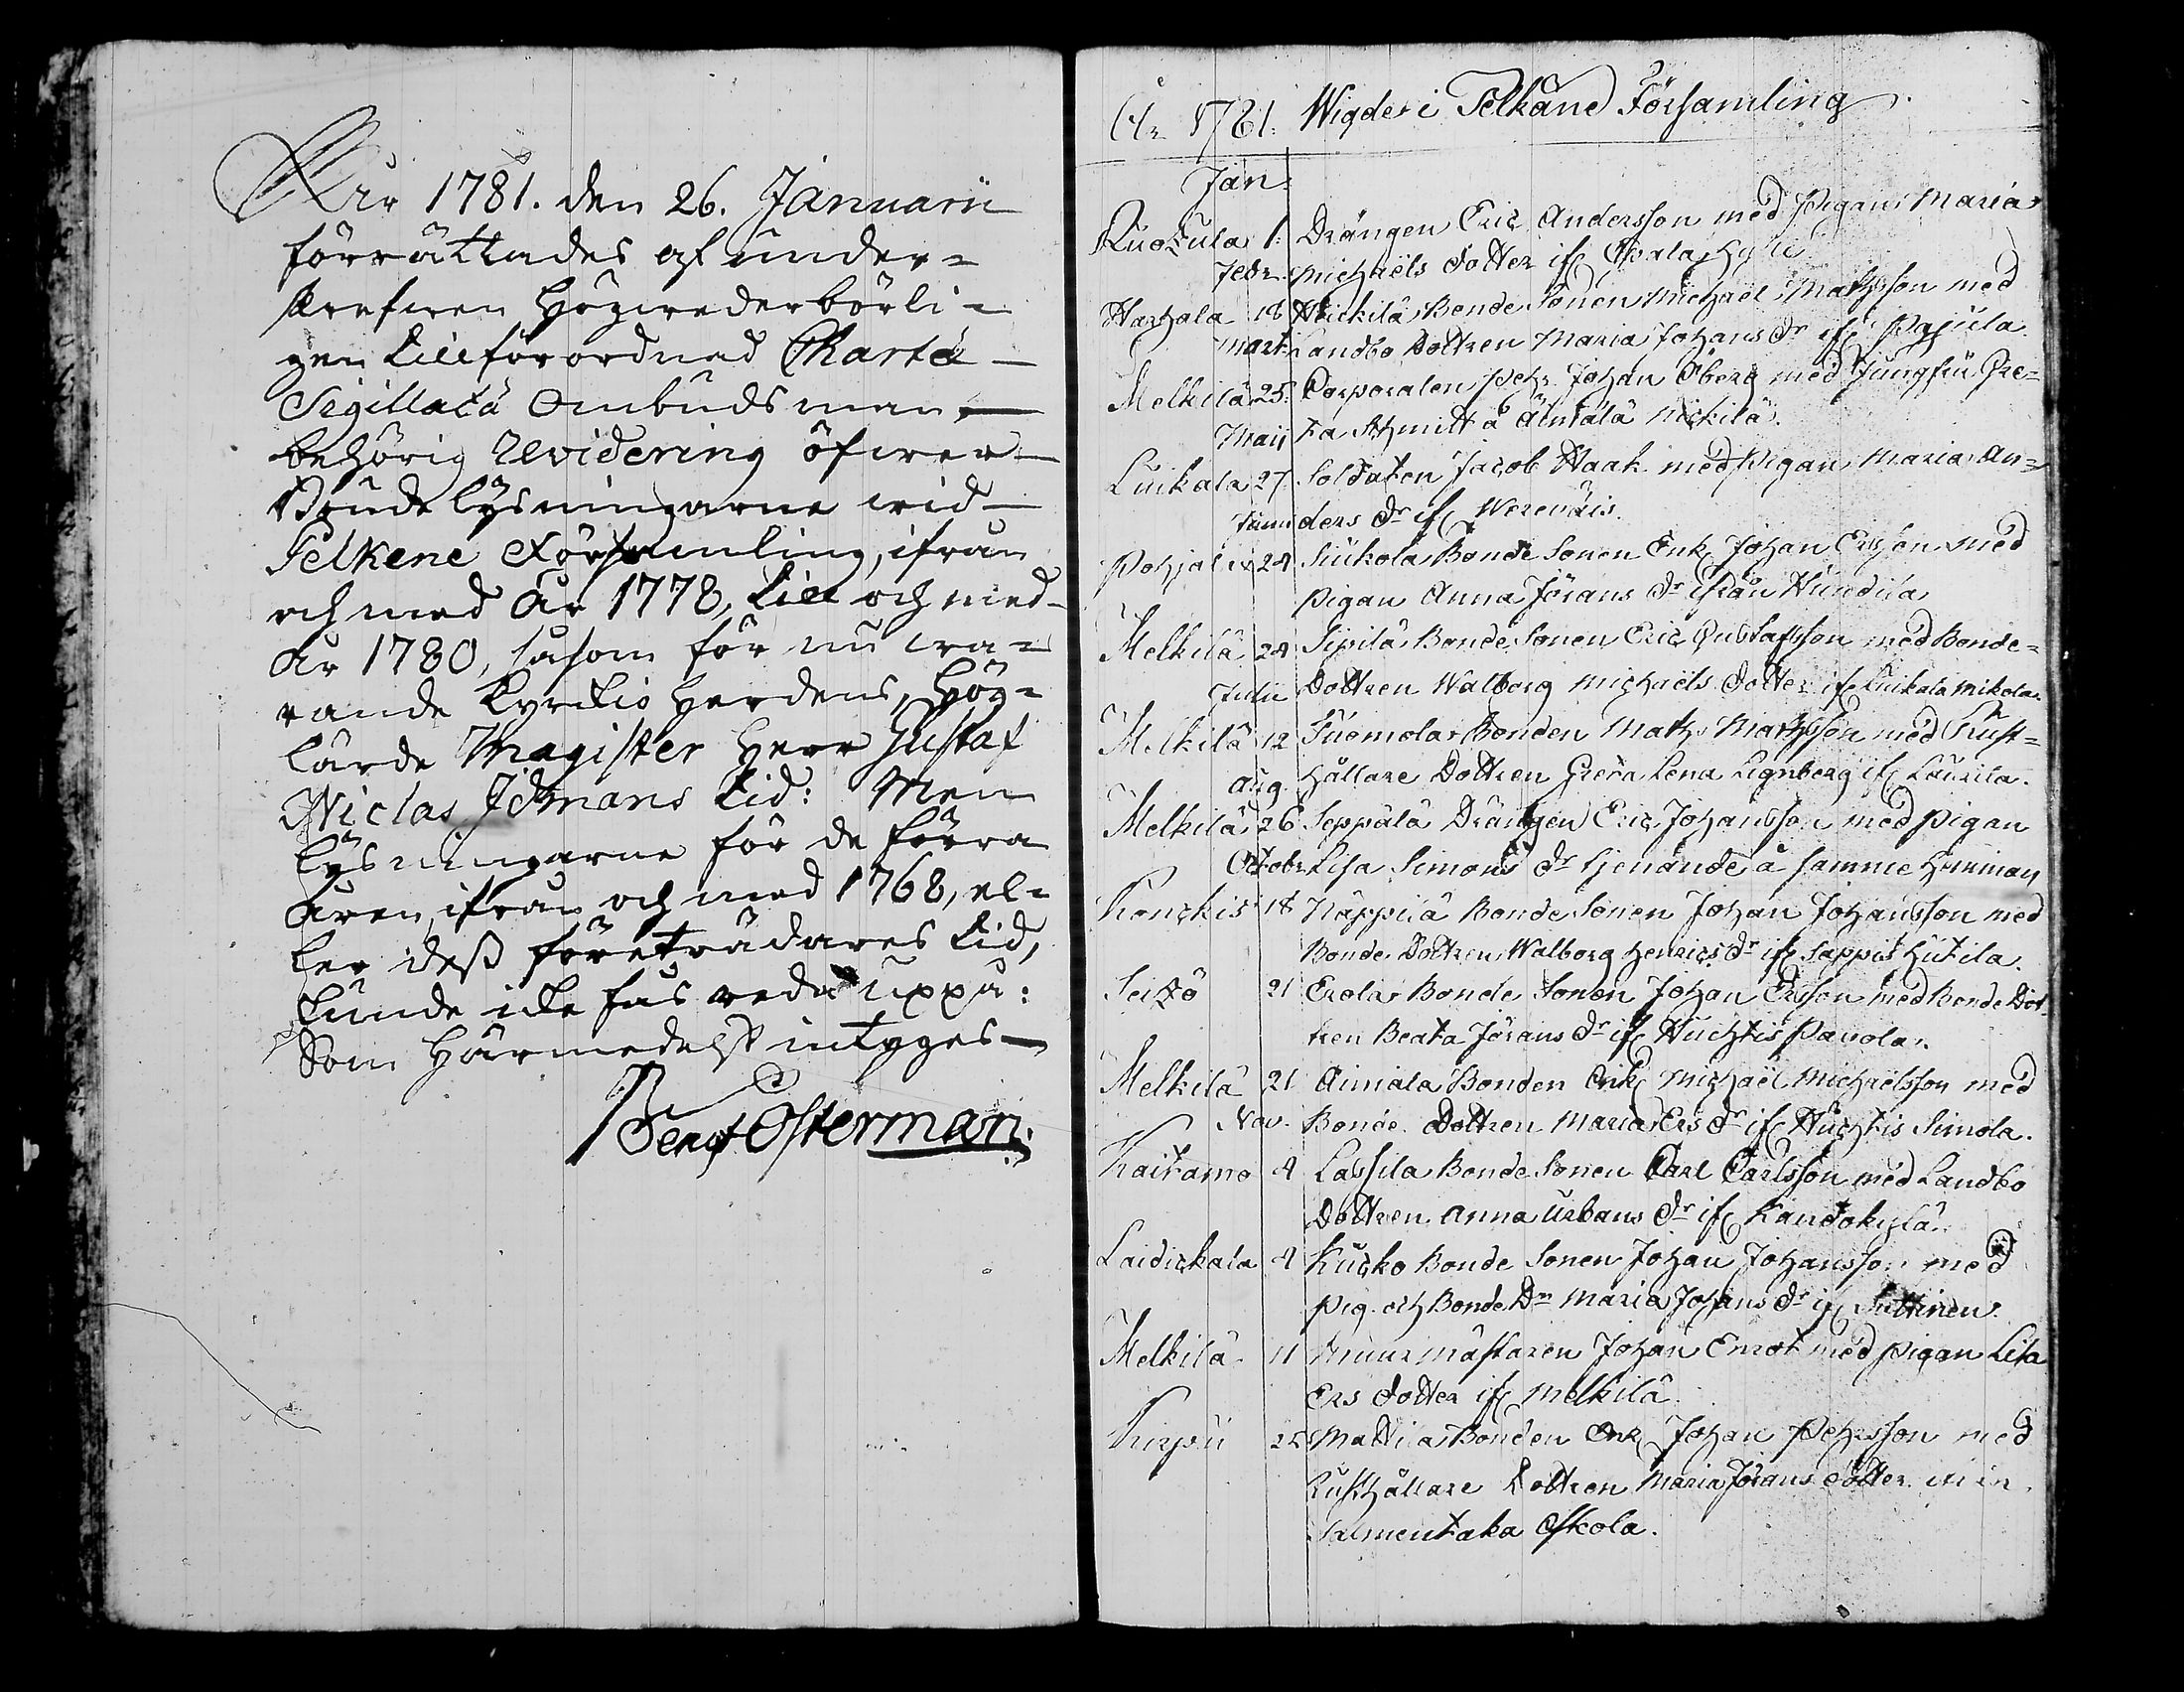 Åhr 1781. den 26. Januarii
förrättades af under-
skrefwen Högwederbörli-
gen tillförordnad Charta
Sigillatæ Ombudsman
behörig Revidering öfwer
Brude lysningarne wid
Pelkene Församling, ifrån
och med År 1778, till och med
År 1780, såsom för nu wa-
rande Kyrkio Herdens, Hög-
lärde Magister Herr Gustaf
Niclas Idmans tid: Men
lysningarne för de förra
åren, ifrån och med 1768, el-
ler dess företrädares tid,
kunde icke fås reda uppå:
Som Härmedelst intyges
Bengt Osterman.
År 1781. Wigde i Pelkäne Församling.
Jan:
Ruokula 1. Drängen Eric Andersson med Pigan Maria
Febr. Michaels dotter if
Harhala 18 Heickilä Bonde Sonen Michael Matsson med
Mart. Landbo Dottren Maria Johans dr if Pajula.
Melkilä 25. Corporalen Pehr Johan Öberg med Jungfru Gre-
Maij ta Schmitt å Äimälä Nickilä.
Luikala 27. Soldaten Jacob Haak med Pigan Maria An-
Junii ders dr if
Pohjalax 24 Siukola Bonde Sonen Enk Johan Ersson med
Pigan Anna Jörans dr ifrån Huudila
Melkilä 24 Sipilä Bonde Sonen Eric Gustafsson med Bonde-
Julii Dottren Walborg Michaels dotter if Luikala Mikola.
Melkilä 12 Tuomola Bonden Mats Matsson med Rust-
Aug. hållare Dottren Greta Lena Lignberg if Laurila.
Melkilä 26 Seppälä Drängen Eric Johansson med Pigan
Octobr Lisa Simons dr tjenande å samme Hemman
Konckis 18 Näppilä Bonde Sonen Johan Johansson med
Bonde Dottren Walborg Henrics dr if Sappis Hutila.
Seitzö 21 Erola Bonde Sonen Johan Ersson med Bonde Dot-
tren Beata Jörans dr if Huchtis Pavola.
Melkilä 21 Äimälä Bonden Enk Michael Michaelsson med
Nov. Bonde Dottren Maria Ers dr if Huchtis Simola.
Kaitamo 4 Lassila Bonde Sonen Carl Carlsson med Landbo
Dottren Anna Urbans dr if Kandokylä.
Laidickala 4 Kucko Bonde Sonen Johan Johansson med
Pig. och Bonde Dn Maria Johans dr if Suttinen.
Melkilä 11 Muurmästaren Johan Enrot med Pigan Lisa
Ers dotter if Melkilä.
Kirpu 25 Mattila Bonden Enk Johan Pehrsson med
Rusthållare Dottren Maria Jörans dotter
Salmentaka Eskola.